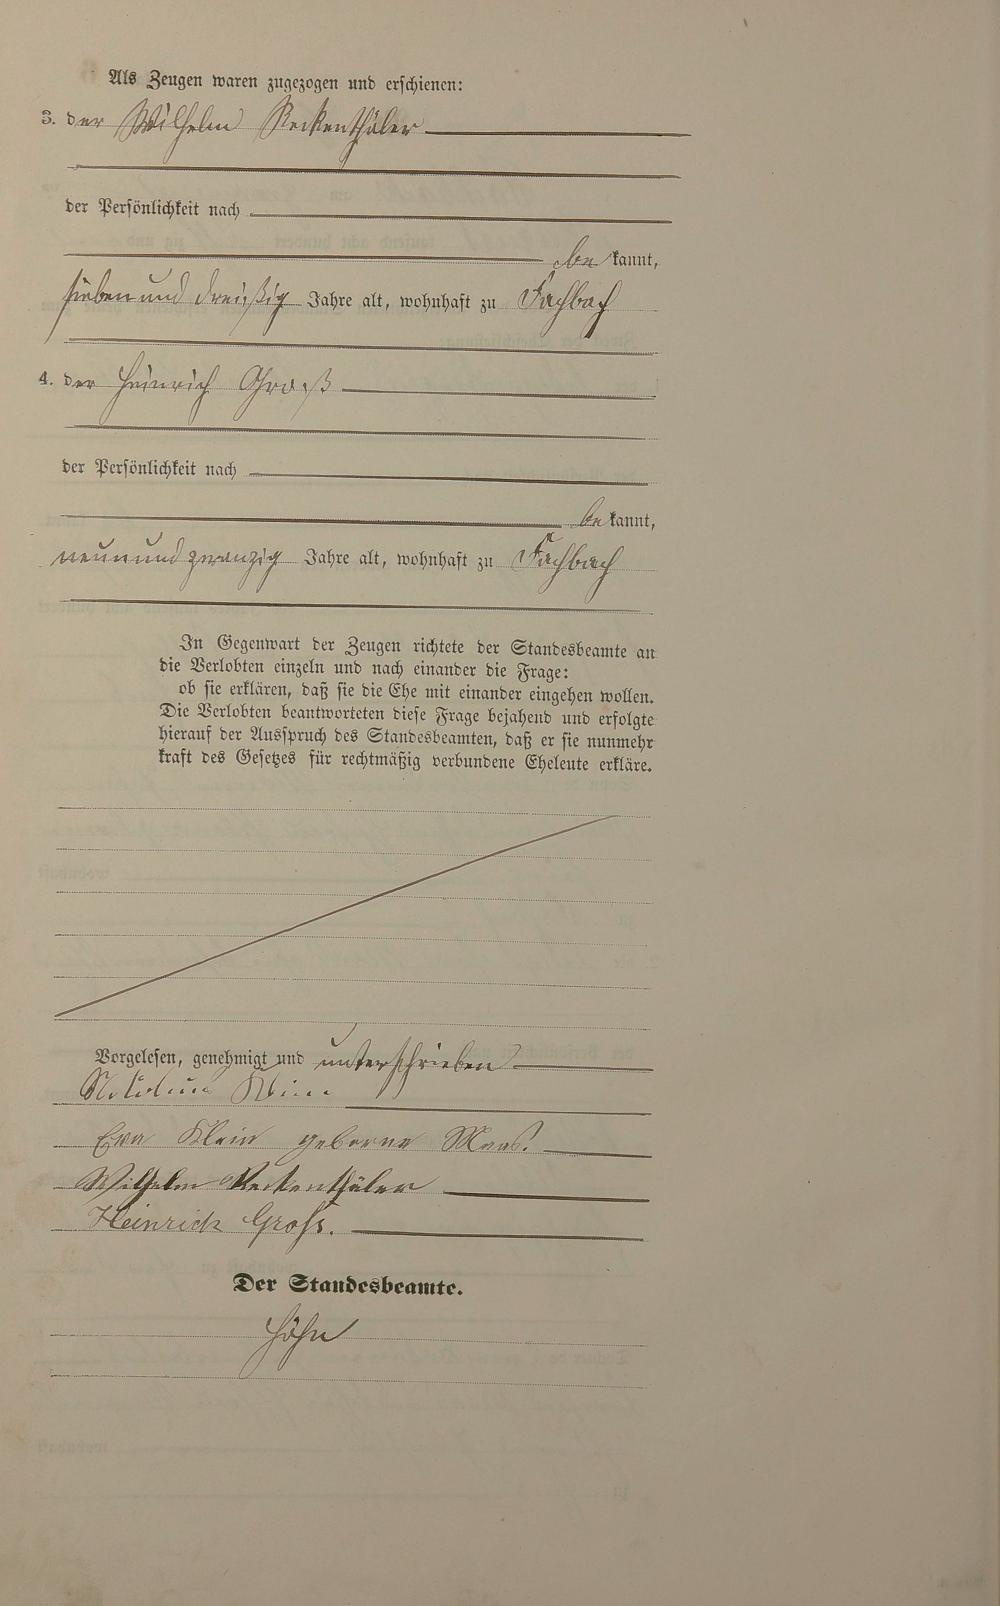 Als Zeugen waren zugezogen und erschienen:
3. der Wilhelm Reckenthäler
der Persönlichkeit nach
be kannt,
siebenund dreißig Jahre alt, wohnhaft zu Fachbach
4. der Heinrich Groß
der Persönlichkeit nach
be kannt,
neunundzwanzig Jahre alt, wohnhaft zu Fachbach
In Gegenwart der Zeugen richtete der Standesbeamte an
die Verlobten einzeln und nach einander die Frage:
ob sie erklären, daß sie die Ehe mit einander eingehen wollen.
Die Verlobten beantworteten diese Frage bejahend und erfolgte
hierauf der Ausspruch des Standesbeamten, daß er sie nunmehr
kraft des Gesetzes für rechtmäßig verbundene Eheleute erkläre.
Vorgelesen, genehmigt und unterschrieben
Eva Klein geborne Maas.
Wilhelm Reckenthäler
Heinrich Gross.
Der Standesbeamte.
Höhn